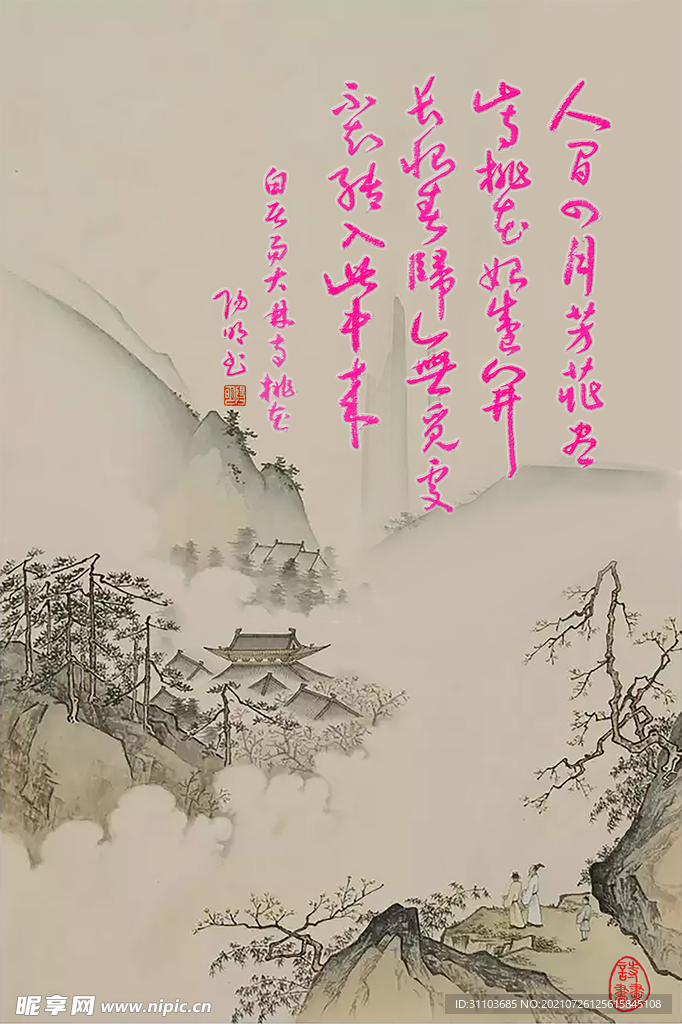 人間四月芳菲尽
山寺桃花始盛開
长恨春歸無觅處
不知转入此中来
白居易大林寺桃花
阳明书
昵享网 www.nipic.cn
ID:31103685 NO:20210726125615845108